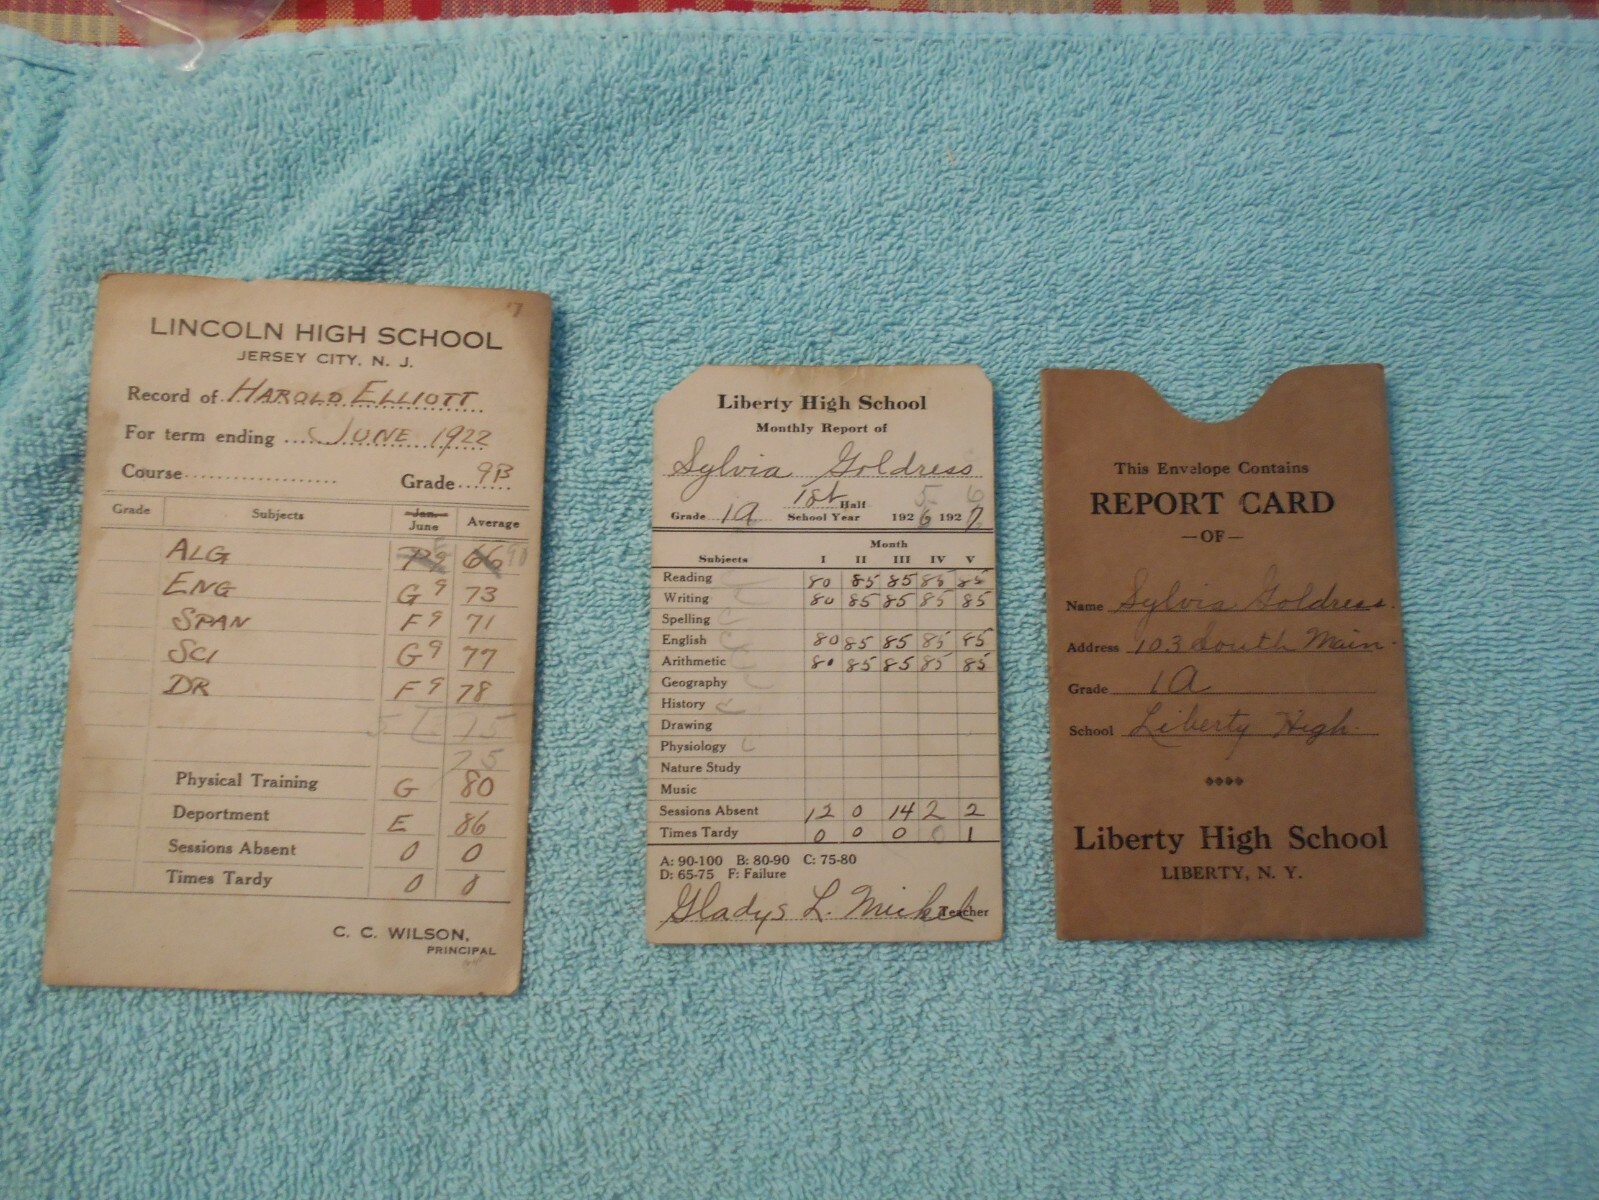 LINCOLN HIGH SCHOOL
JERSEY CITY, N. J.
Record of HAROLD ELLIOTT
For term ending JUNE 1922
Course
Grade 9B
Grade Subjects Jan. June Average
ALG 66
ENG G 9 73
SPAN F 9 71
SCI G 9 77
DR F 9 78
75
Physical Training G 80
Deportment E 86
Sessions Absent 0 0
Times Tardy 0 0
C. C. WILSON,
PRINCIPAL
Liberty High School
Monthly Report of
Sylvia Goldress
Grade 1A 1st Half School Year 1926 1927
5 6
Month
Subjects I II III IV V
Reading 80 85 85 85 85
Writing 80 85 85 85 85
Spelling
English 80 85 85 85 85
Arithmetic 80 85 85 85 85
Geography
History
Drawing
Physiology
Nature Study
Music
Sessions Absent 12 0 14 2 2
Times Tardy 0 0 0 0 1
A: 90-100 B: 80-90 C: 75-80
D: 65-75 F: Failure
Gladys L. Mickel Teacher
This Envelope Contains
REPORT CARD
—OF—
Name Sylvia Goldress
Address 103 South Main
Grade 1A
School Liberty High
Liberty High School
LIBERTY, N. Y.